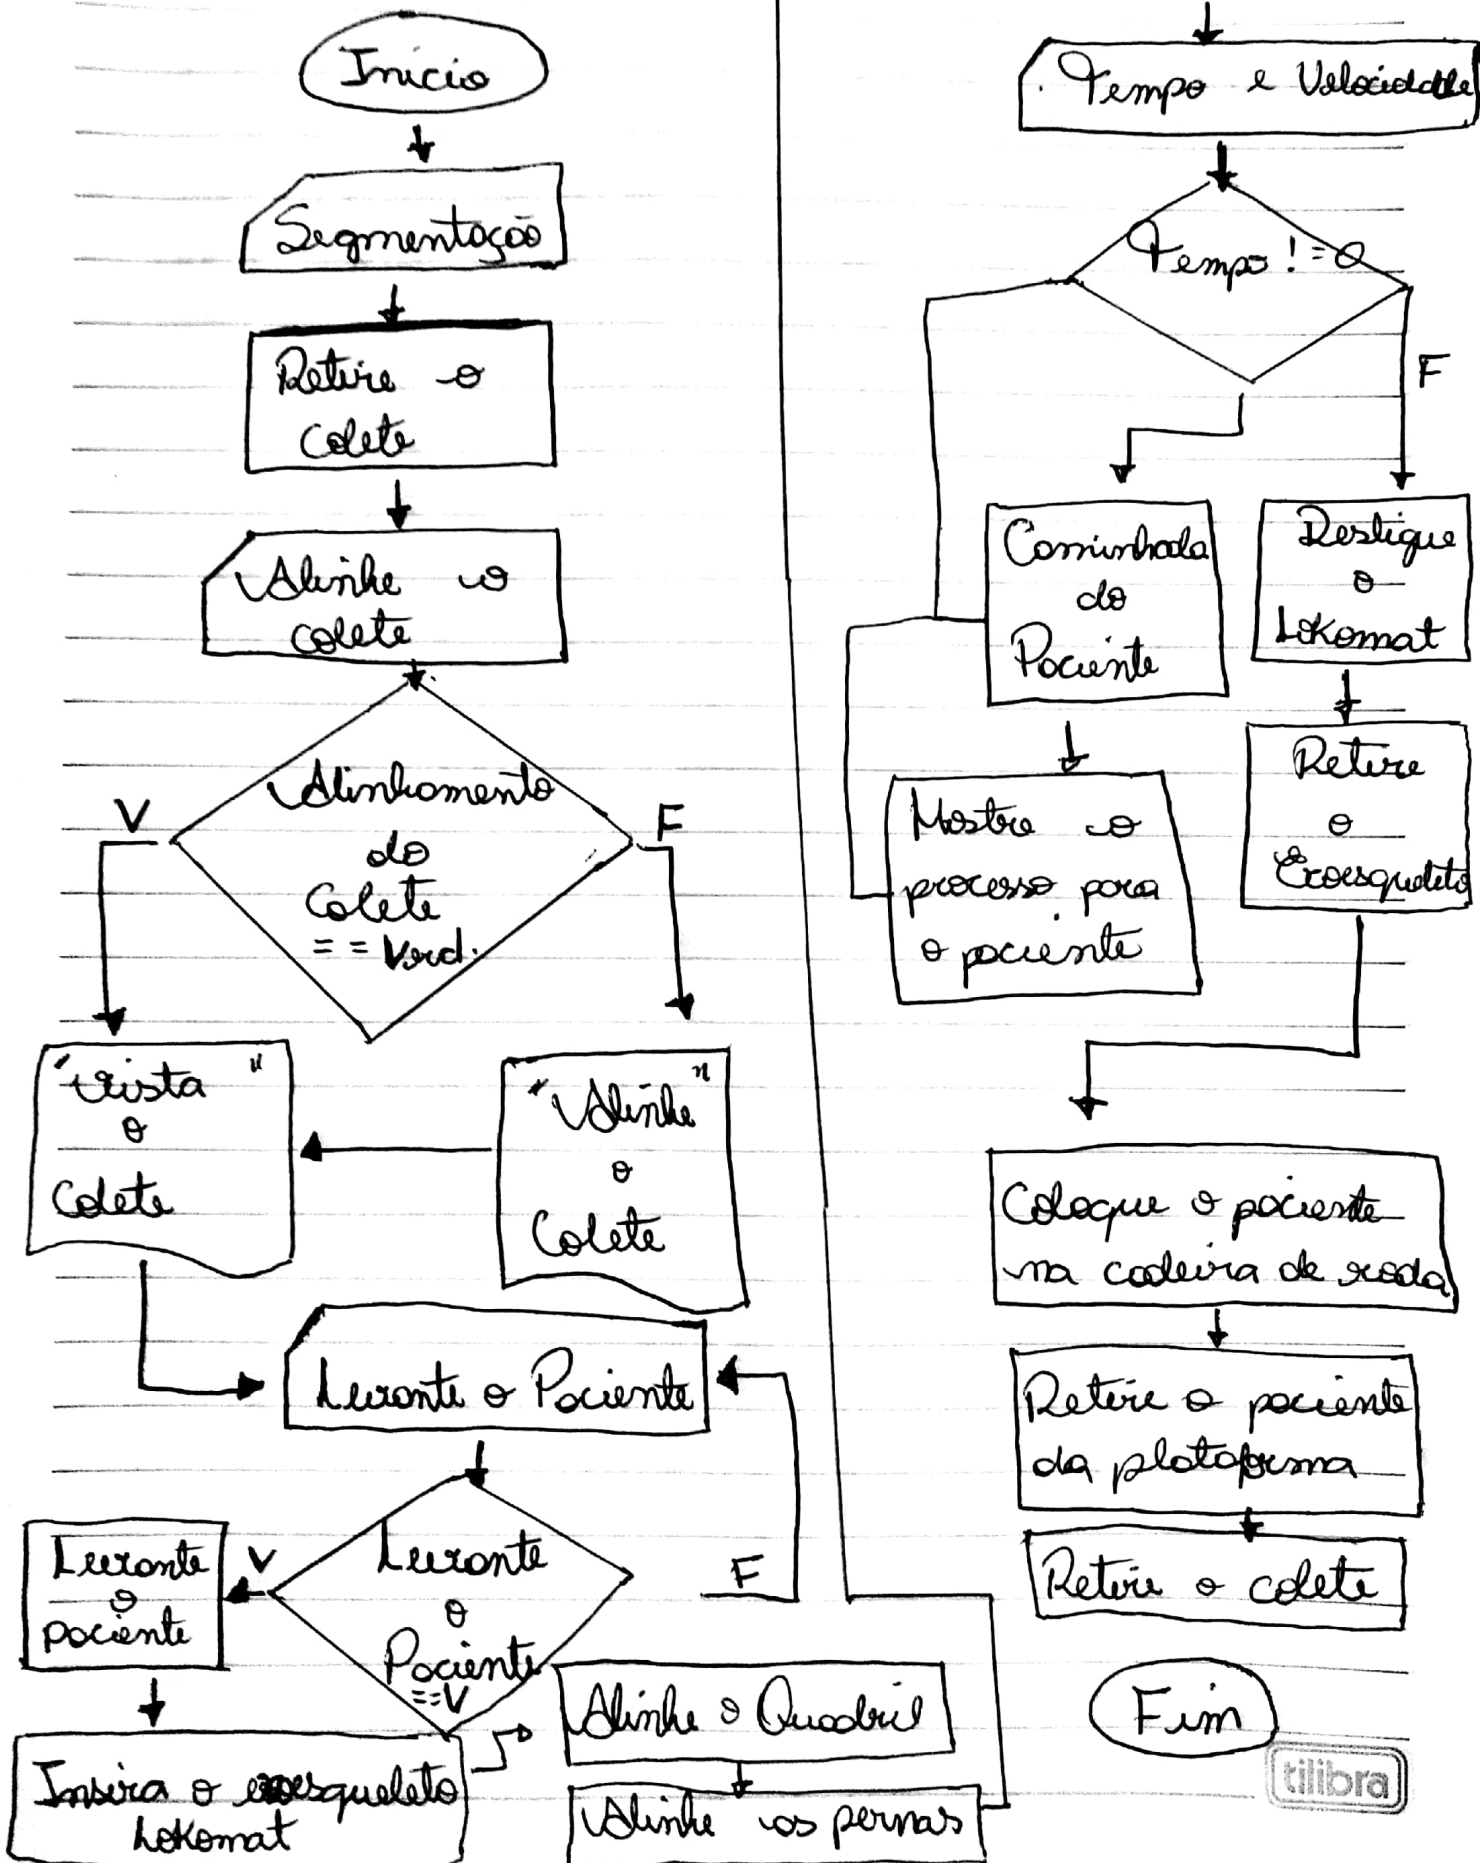 Início
Segmentação
Retire o
colete
Alinhe o
colete
Alinhamento
do
Colete
== Verd.
V
F
"Vista"
o
Colete
"Alinhe"
o
Colete
Levante o Paciente
Levante
o
Paciente
==V
V
F
Levante
o
paciente
Insira o exoesqueleto
Lokomat
Alinhe o Quadril
Alinhe as pernas
Tempo e Velocidade
Tempo != 0
F
Caminhada
do
Paciente
Mostre o
processo para
o paciente
Desligue
o
Lokomat
Retire
o
Exoesqueleto
Coloque o paciente
na cadeira de roda
Retire o paciente
da plataforma
Retire o colete
Fim
tilibra